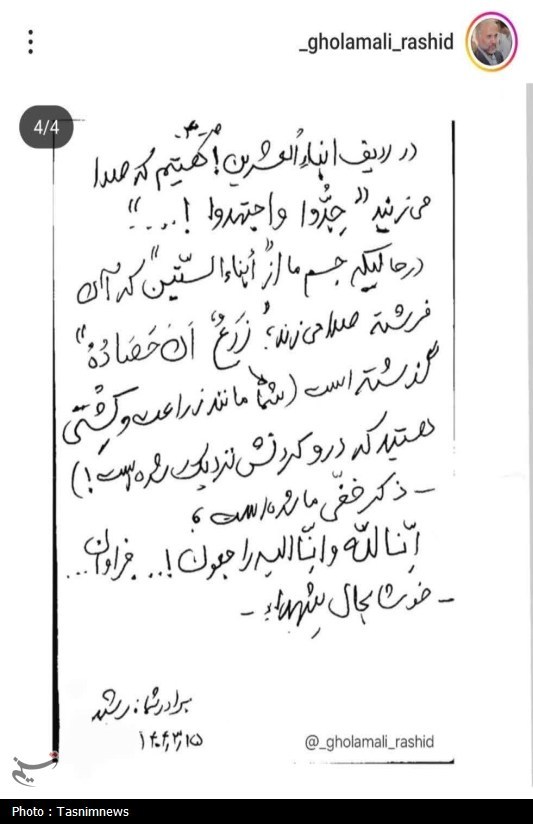 _gholamali_rashid
4/4
-۴-
در ردیف ابناءُالعشرین! هستیم که صدا
می‌زنید "جِدُّوا واجتهدوا !...."
درحالیکه جسم ما از "أبناء السِّتّین" که آن
فرشته صدا می‌زند: "زَرعٌ آنَ حَصَادُهُ"
گذشته است (شما مانند زراعت و کِشتی
هستید که درو کردنش نزدیک شده است!)
- ذکر خفیّ ما شده است؛
اِنّا لله و انّا الیه راجعون!... فراوان...
- خوشا بحال شهداء -
برادر شما: رشید
۱۴۰۴٫۳٫۱۵
@_gholamali_rashid
تسنیم
Photo : Tasnimnews